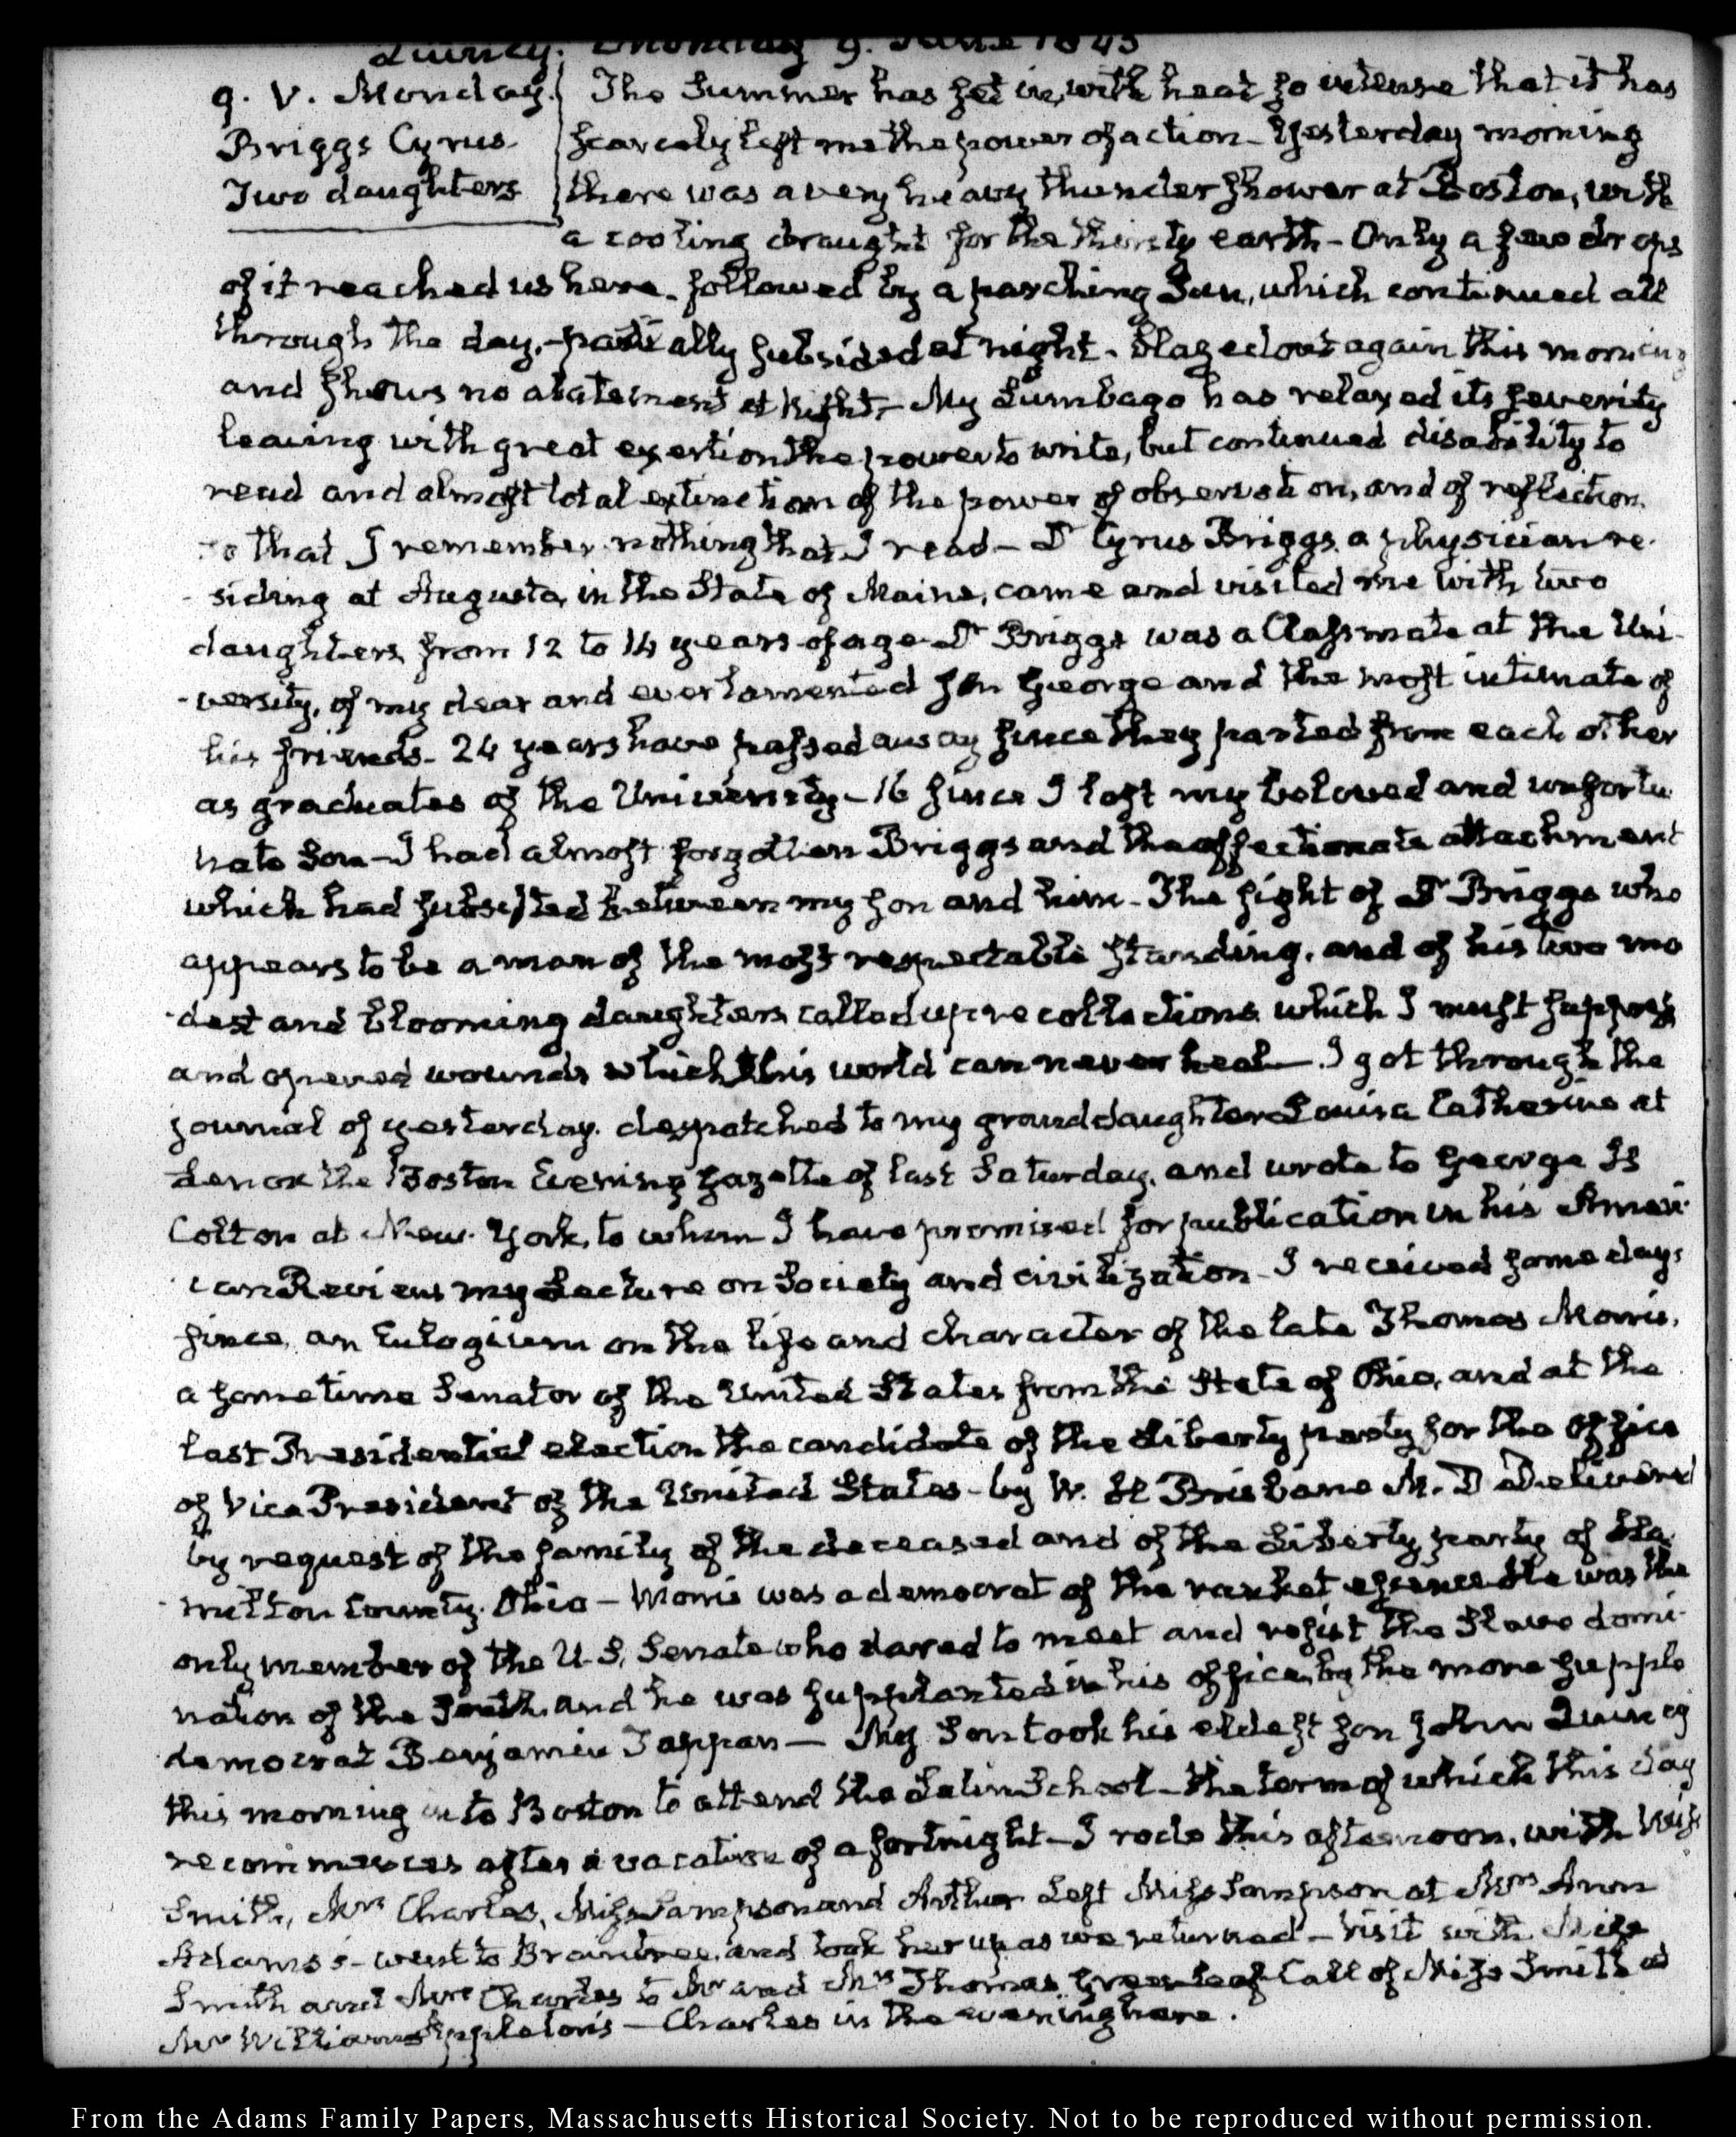 Quincy. Monday 9. June 1845
9. V. Monday.
Briggs Cyrus.
Two daughters
The Summer has set in, with heat so intense that it has
scarcely left me the power of action - Yesterday morning
there was a very heavy thunder shower at Boston, with
a cooling draught for the thirsty earth - Only a few drops
of it reached us here. followed by a parching Sun, which continued all
through the day, - partially subsided at night. blazed out again this morning
and shows no abatement at Night, - My Lumbago has relaxed its severity
leaving with great exertion the power to write, but continued disability to
read and almost total extinction of the power of observation, and of reflection,
so that I remember nothing that I read - Dr Cyrus Briggs a physician re-
-siding at Augusta, in the State of Maine, came and visited me with two
daughters from 12 to 14 years of age - Dr Briggs was a Classmate at the Uni-
-versity, of my dear and ever lamented son George and the most intimate of
his friends - 24 years have passed away since they parted from each other
as graduates of the University - 16 since I lost my beloved and unfortu
nate Son - I had almost forgotten Briggs and the affectionate attachment
which had subsisted between my son and him - The sight of Dr Briggs who
appears to be a man of the most respectable standing, and of his two mo
-dest and blooming daughters called up recollections which I must suppress
and opened wounds which this world can never heal - I got through the
journal of yesterday. despatched to my granddaughter Louisa Catherine at
Lenox the Boston Evening Gazette of last Saturday, and wrote to George H
Colton at New-York, to whom I have promised for publication in his Ameri-
can Review my Lecture on Society and civilization - I received some days
since, an Eulogium on the life and character of the late Thomas Morris,
a sometime Senator of the United States from the State of Ohio, and at the
last Presidential election the candidate of the Liberty party for the Office
of Vice President of the United States - by W. H Brisbane M. D Delivered
by request of the family of the deceased and of the Liberty party of Ha
-milton County, Ohio - Morris was a democrat of the rankest essence He was the
only member of the U.S. Senate who dared to meet and resist the Slave domi-
nation of the South, and he was supplanted in his office, by the more supple
democrat Benjamin Tappan - My Son took his eldest son John Quincy
this morning into Boston to attend the Latin School - the term of which this day
recommences after a vacation of a fortnight - I rode this afternoon, with
Smith, Mrs Charles, Miss Sampson and Arthur Left Miss Sampson at Mrs Ann
Adams's - went to Braintree, and took her up as we returned - Visit with Miss
Smith and Mrs Charles to Mr and Mrs Thomas Greenleaf Call of Miss Smith at
Mr William Appleton's - Charles in the evening here.
From the Adams Family Papers, Massachusetts Historical Society. Not to be reproduced without permission.